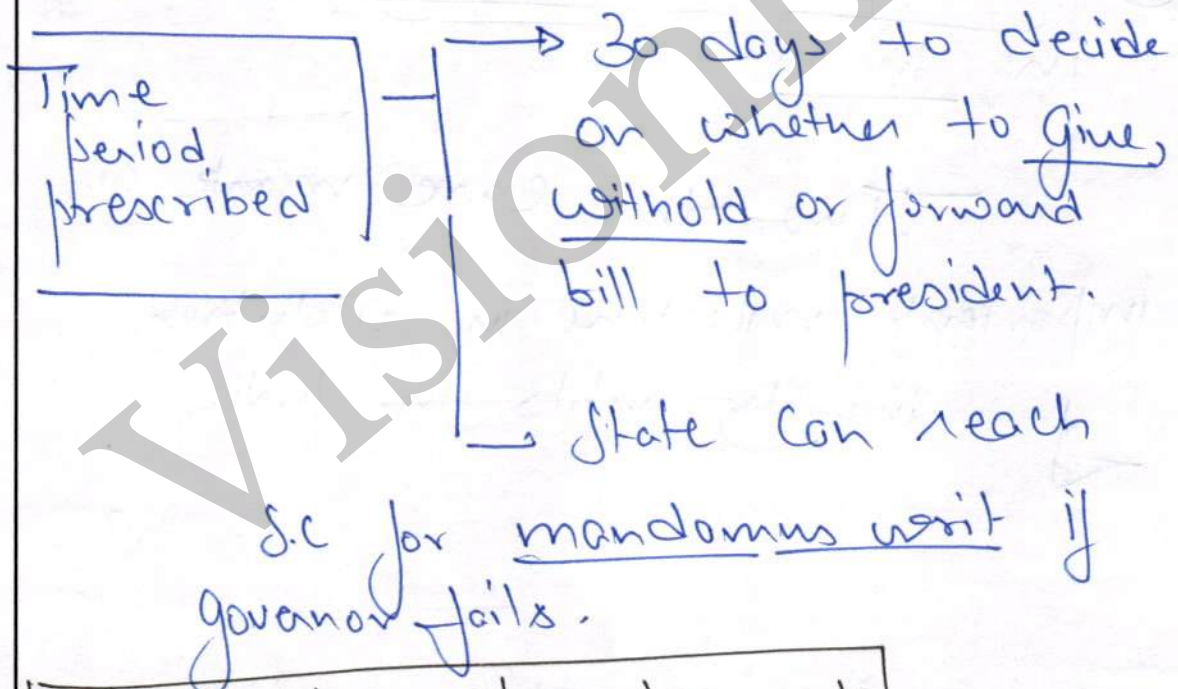 Time
period
prescribed
→ 30 days to decide
on whether to Give,
withold or forward
bill to president.
→ State can reach
S.C for mandamus writ if
governor fails.
Vision